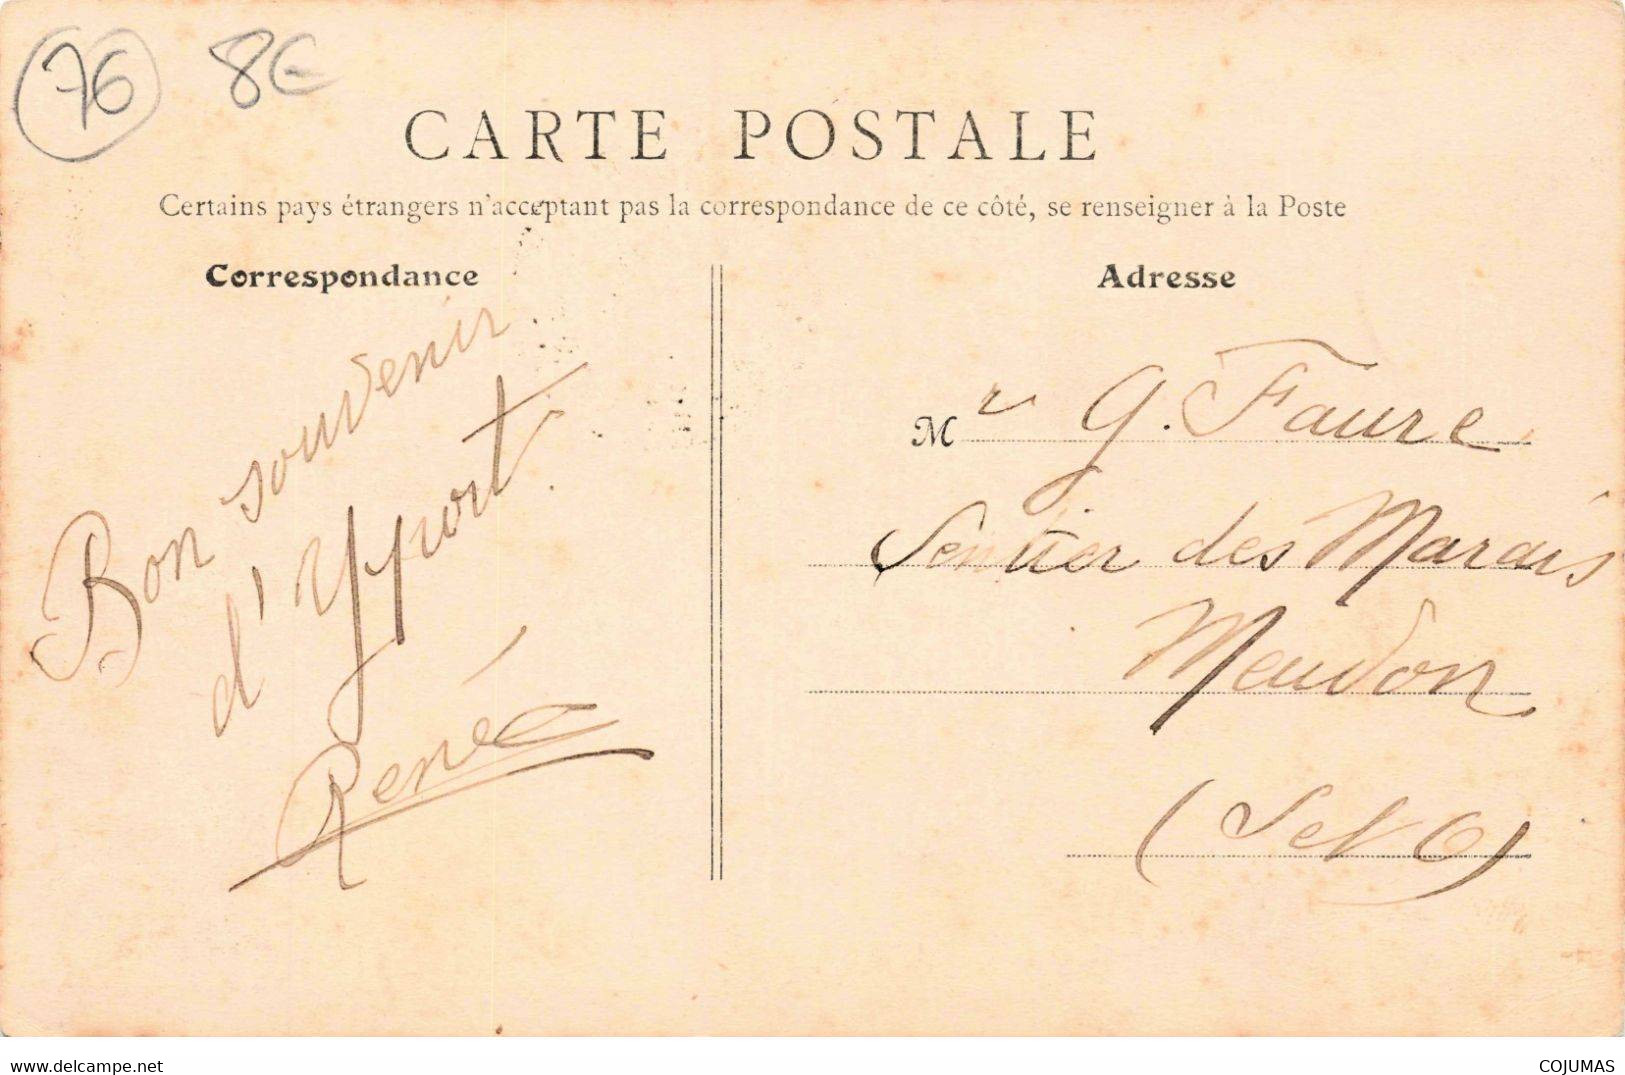 76 8€
CARTE POSTALE
Certains pays étrangers n'acceptant pas la correspondance de ce côté, se renseigner à la Poste
Correspondance
Bon souvenir
d'Yport
René
Adresse
Mr G. Faure
Sentier des Marais
Meudon
(S et O)
www.delcampe.net
COJUMAS